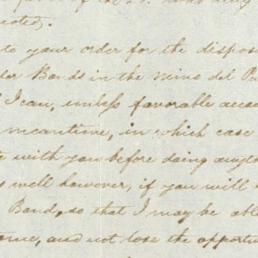 noted).
to your order for the dispos
Bonds in the mino del
I can, unless favorable acco
meantime, in which case
with you before doing anyt
so well however, if you will
Band, so that I may be able
and not lose the opportu